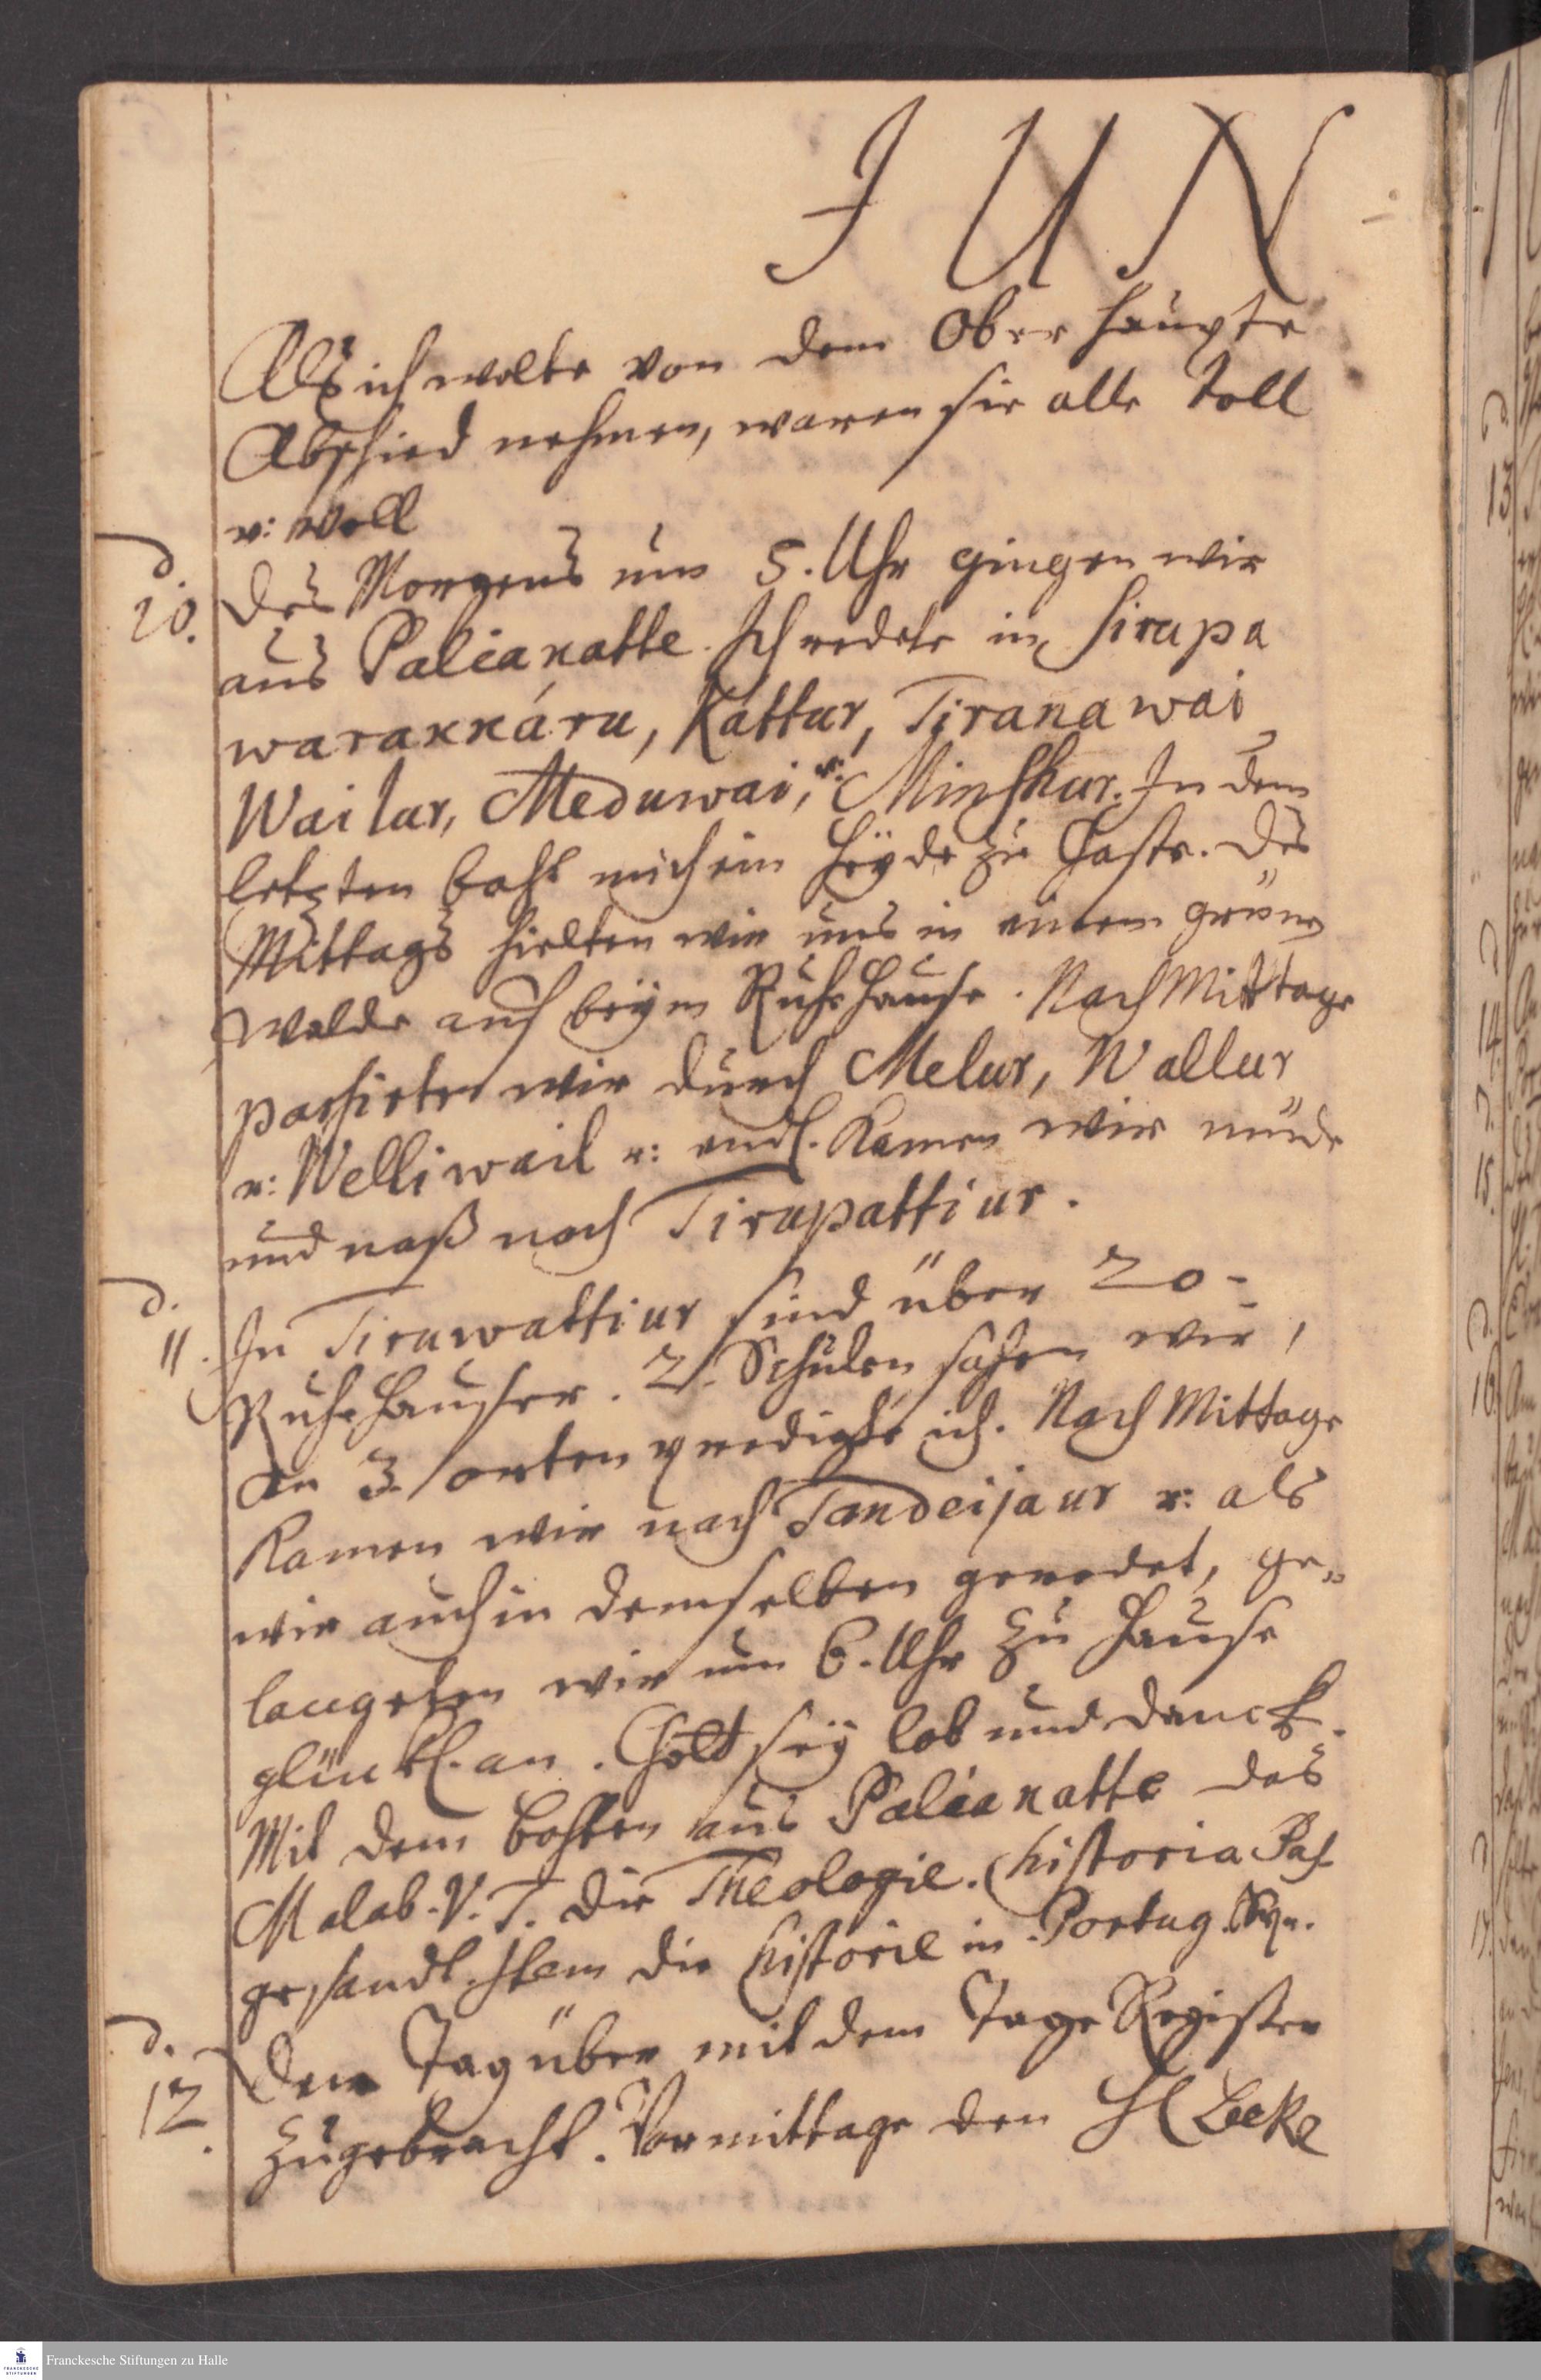 JUN
Als ich wolte von dem Ober Haupte
Abschied nehmen, waren sie alle toll
u: voll
d. 10. Des Morgens um 5. Uhr gingen wir
aus Paliacatte. Ich redete in Sirupa
warakkáru, Kattur, Tiranawai
Wailur, Meduwai, u: Minshur. In dem
letzten baht mich ein Heyde zu Gaste. Des
Mittags hielten wir uns in einem grünen
Walde auf beym Ruhe Hause. Nach Mittage
passirten wir durch Melur, Wallur
u: Welliwail u: endl. kamen wir müde
und naß nach Tirupattiur.
d. 11. In Tiruwattiur sind über 20
Ruhe Hauser. 2. Schulen sahen wir,
An 3. orten predigte ich. Nach Mittage
kamen wir nach Tandeijaur u: als
wir auch in demselben geredet, ge„
langeten wir um 6. Uhr zu Hause
glückl. an. Gott sey lob und danck.
Mit dem bothen aus Paliacatte das
Malab. V. T. die Theologie. Historia Pas.
gesandt. Item die Historie in Portug.
d. 12. Den Tag über mit dem Tage Register
zugebracht. Vormittage den H
Franckesche Stiftungen zu Halle